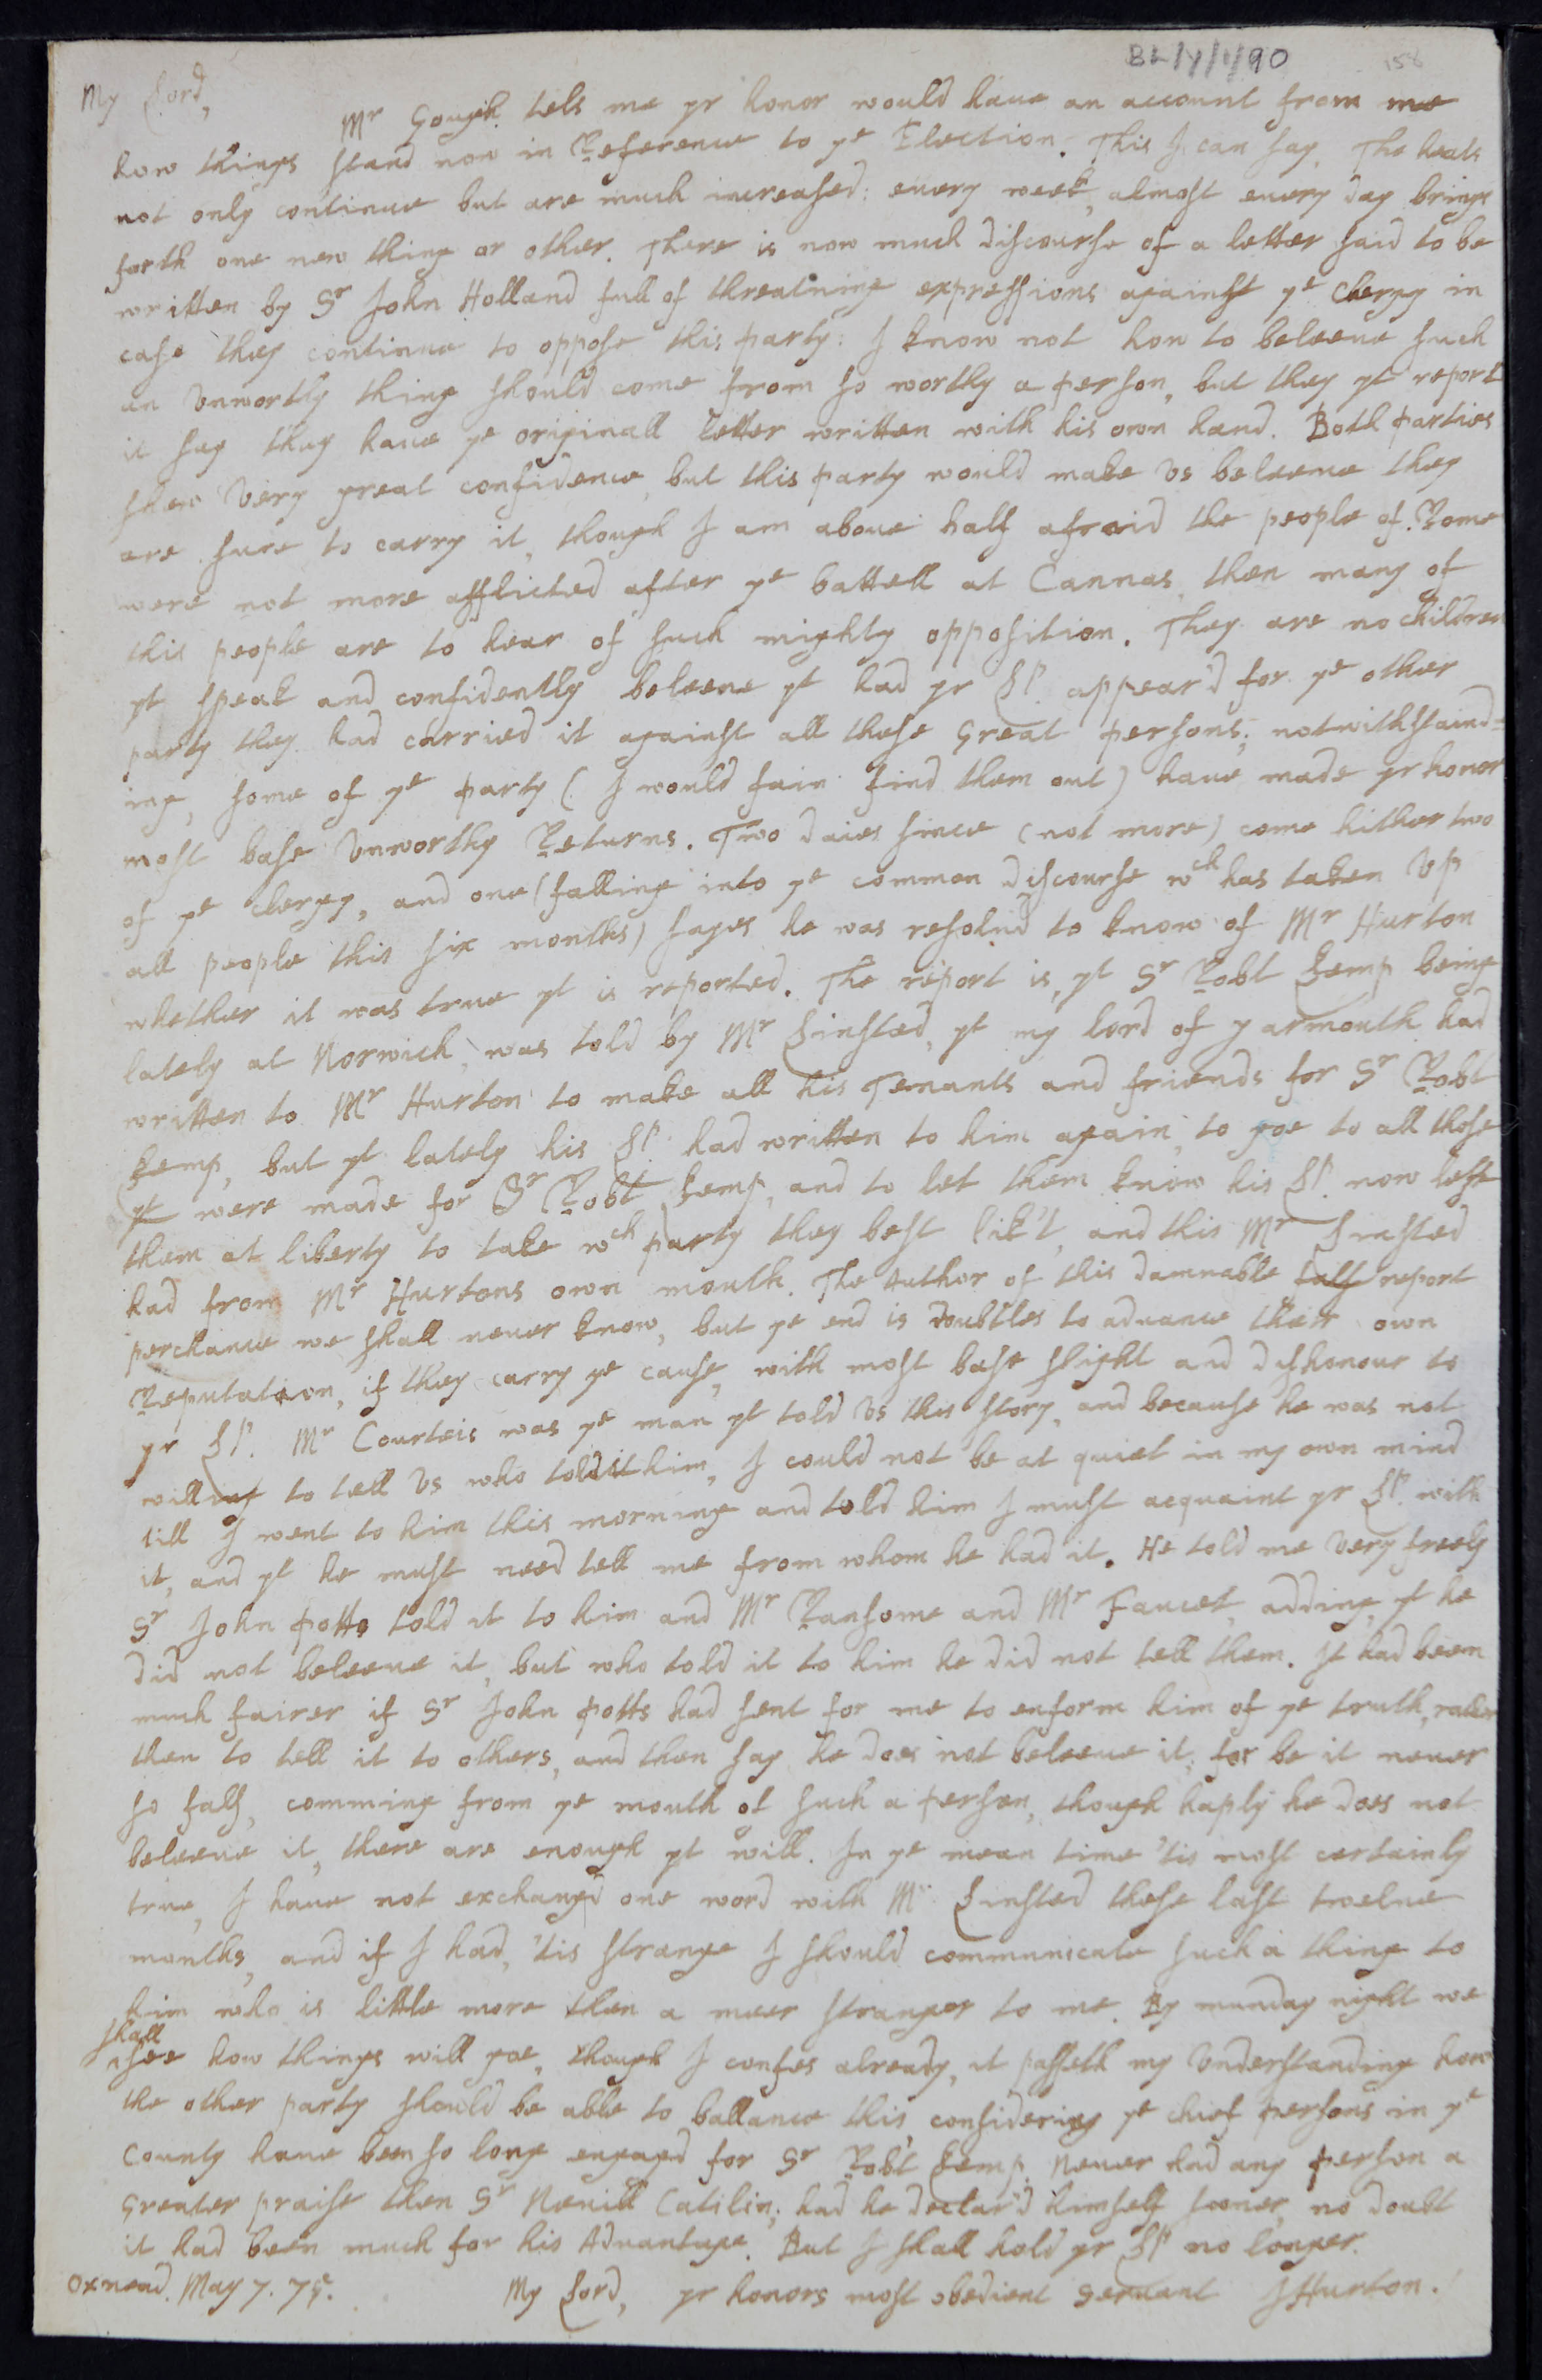 BL/Y/1/90
158
My Lord,
Mr Gough tels me yr honor would haue an account from me
how things stand now in Reference to ye Election. This I can say, The heats
not only continue but are much increased: euery week, almost euery day brings
forth one new thing or other. There is now much discourse of a letter said to be
written by Sr John Holland full of threatning expressions against ye Clergy in
case they continue to oppose this party: I know not how to beleeue such
an Vnworthy thing should come from so worthy a person, but they yt report
it say they haue ye originall letter written with his own hand. Both parties
shew Very great confidence, but this party would make Vs beleeue they
are sure to carry it, though I am aboue half afraid the people of Rome
were not more afflicted after ye battell at Cannas, then many of
this people are to hear of such mighty opposition. They are no children
yt speak and confidently beleeue yt had yr Lp. appear'd for ye other
party they had carried it against all these Great persons; notwithstaind=
ing, some of ye party (I would fain find them out) haue made yr honor
most base Vnworthy Returns. Two daies since (not more) come hither two
of ye clergy, and one (falling into ye common discourse wch has taken Vp
all people this six months) sayes he was resolud to know of Mr Hurton
whether it was true yt is reported. The report is, yt Sr Robt Kemp being
lately at Norwich, was told by Mr Linsted, yt my lord of yarmouth had
written to Mr Hurton to make all his Tenants and friends for Sr Robt
Kemp, but yt lately his Lp. had written to him again, to goe to all those
yt were made for Sr Robt Kemp, and to let them know his Lp. now left
them at liberty to take wch party they best lik't, and this Mr Linsted
had from Mr Hurtons own mouth. The Author of this damnable fals report
perchance we shall neuer know, but ye end is doubtles to aduance their own
Reputation, if they carry ye cause, with most base slight and dishonour to
yr Lp. Mr Courteis was ye man yt told Vs this story, and because he was not
willing to tell Vs who told it him, I could not be at quiet in my own mind
till I went to him this morning and told him I must acquaint yr Lp. with
it, and yt he must need tell me from whom he had it. He told me Very freely
Sr John Potts told it to him and Mr Ransome and Mr Faucet, adding, yt he
did not beleeue it, but who told it to him he did not tell them. It had been
much fairer if Sr John Potts had sent for me to enform him of ye truth, rather
then to tell it to others, and then say he does not beleeue it; for be it neuer
so fals, comming from ye mouth of such a person, though haply he does not
beleeue it, there are enough yt will. In ye mean time 'tis most certainly
true, I haue not exchangd one word with Mr Linsted these last twelue
months, and if I had, 'tis strange I should communicate such a thing to
him who is little more then a meer stranger to me. By munday night we
shall
see how things will goe, though I confes already, it passeth my Vnderstanding how
the other party should be able to ballance this, considering ye chief persons in ye
County haue been so long engagd for Sr Robt Kemp. Neuer had any person a
Greater praise then Sr Neuill Catilin; had he declar'd himself sooner, no doubt
it had been much for his Aduantage. But I shall hold yr Lp no longer.
Oxnead. May 7. 75.
My Lord, yr honors most obedient Seruant JHurton.